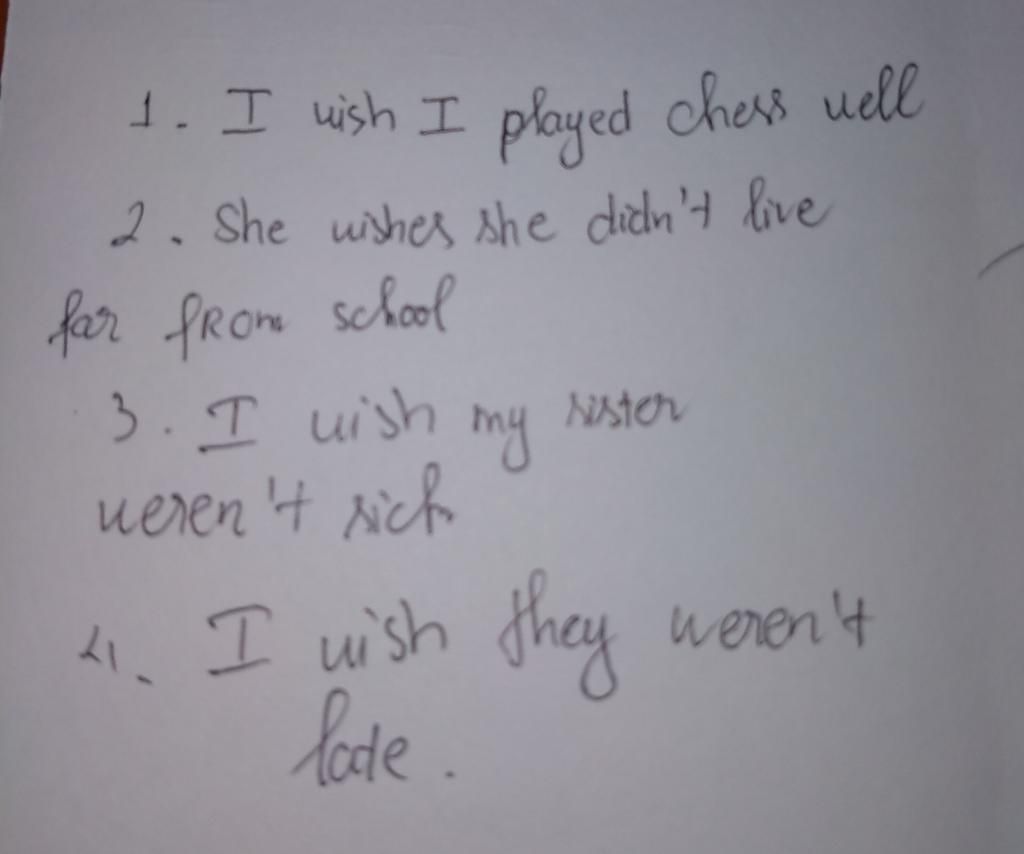 1. I wish I played chess well
2. She wishes she didn't live
far from school
3. I wish my sister
weren't sick
4. I wish they weren't
late.